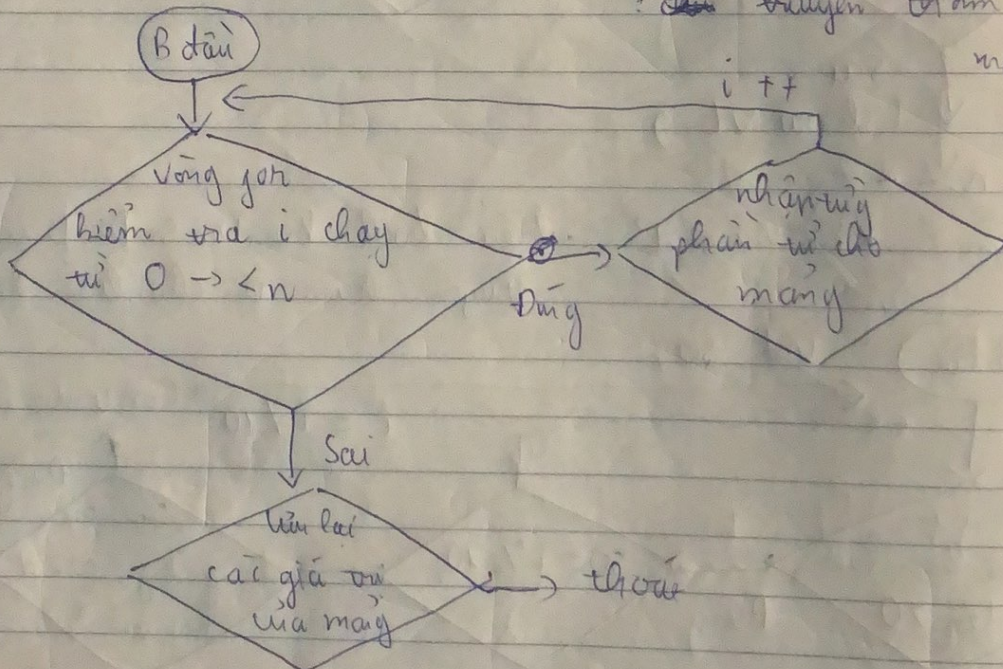 truyền tham
m
B đầu
i ++
vòng for
kiểm tra i chạy
từ 0 -> < n
Đúng
nhận từng
phần tử cho
mảng
Sai
lưu lại
các giá trị
của mảng
thoát